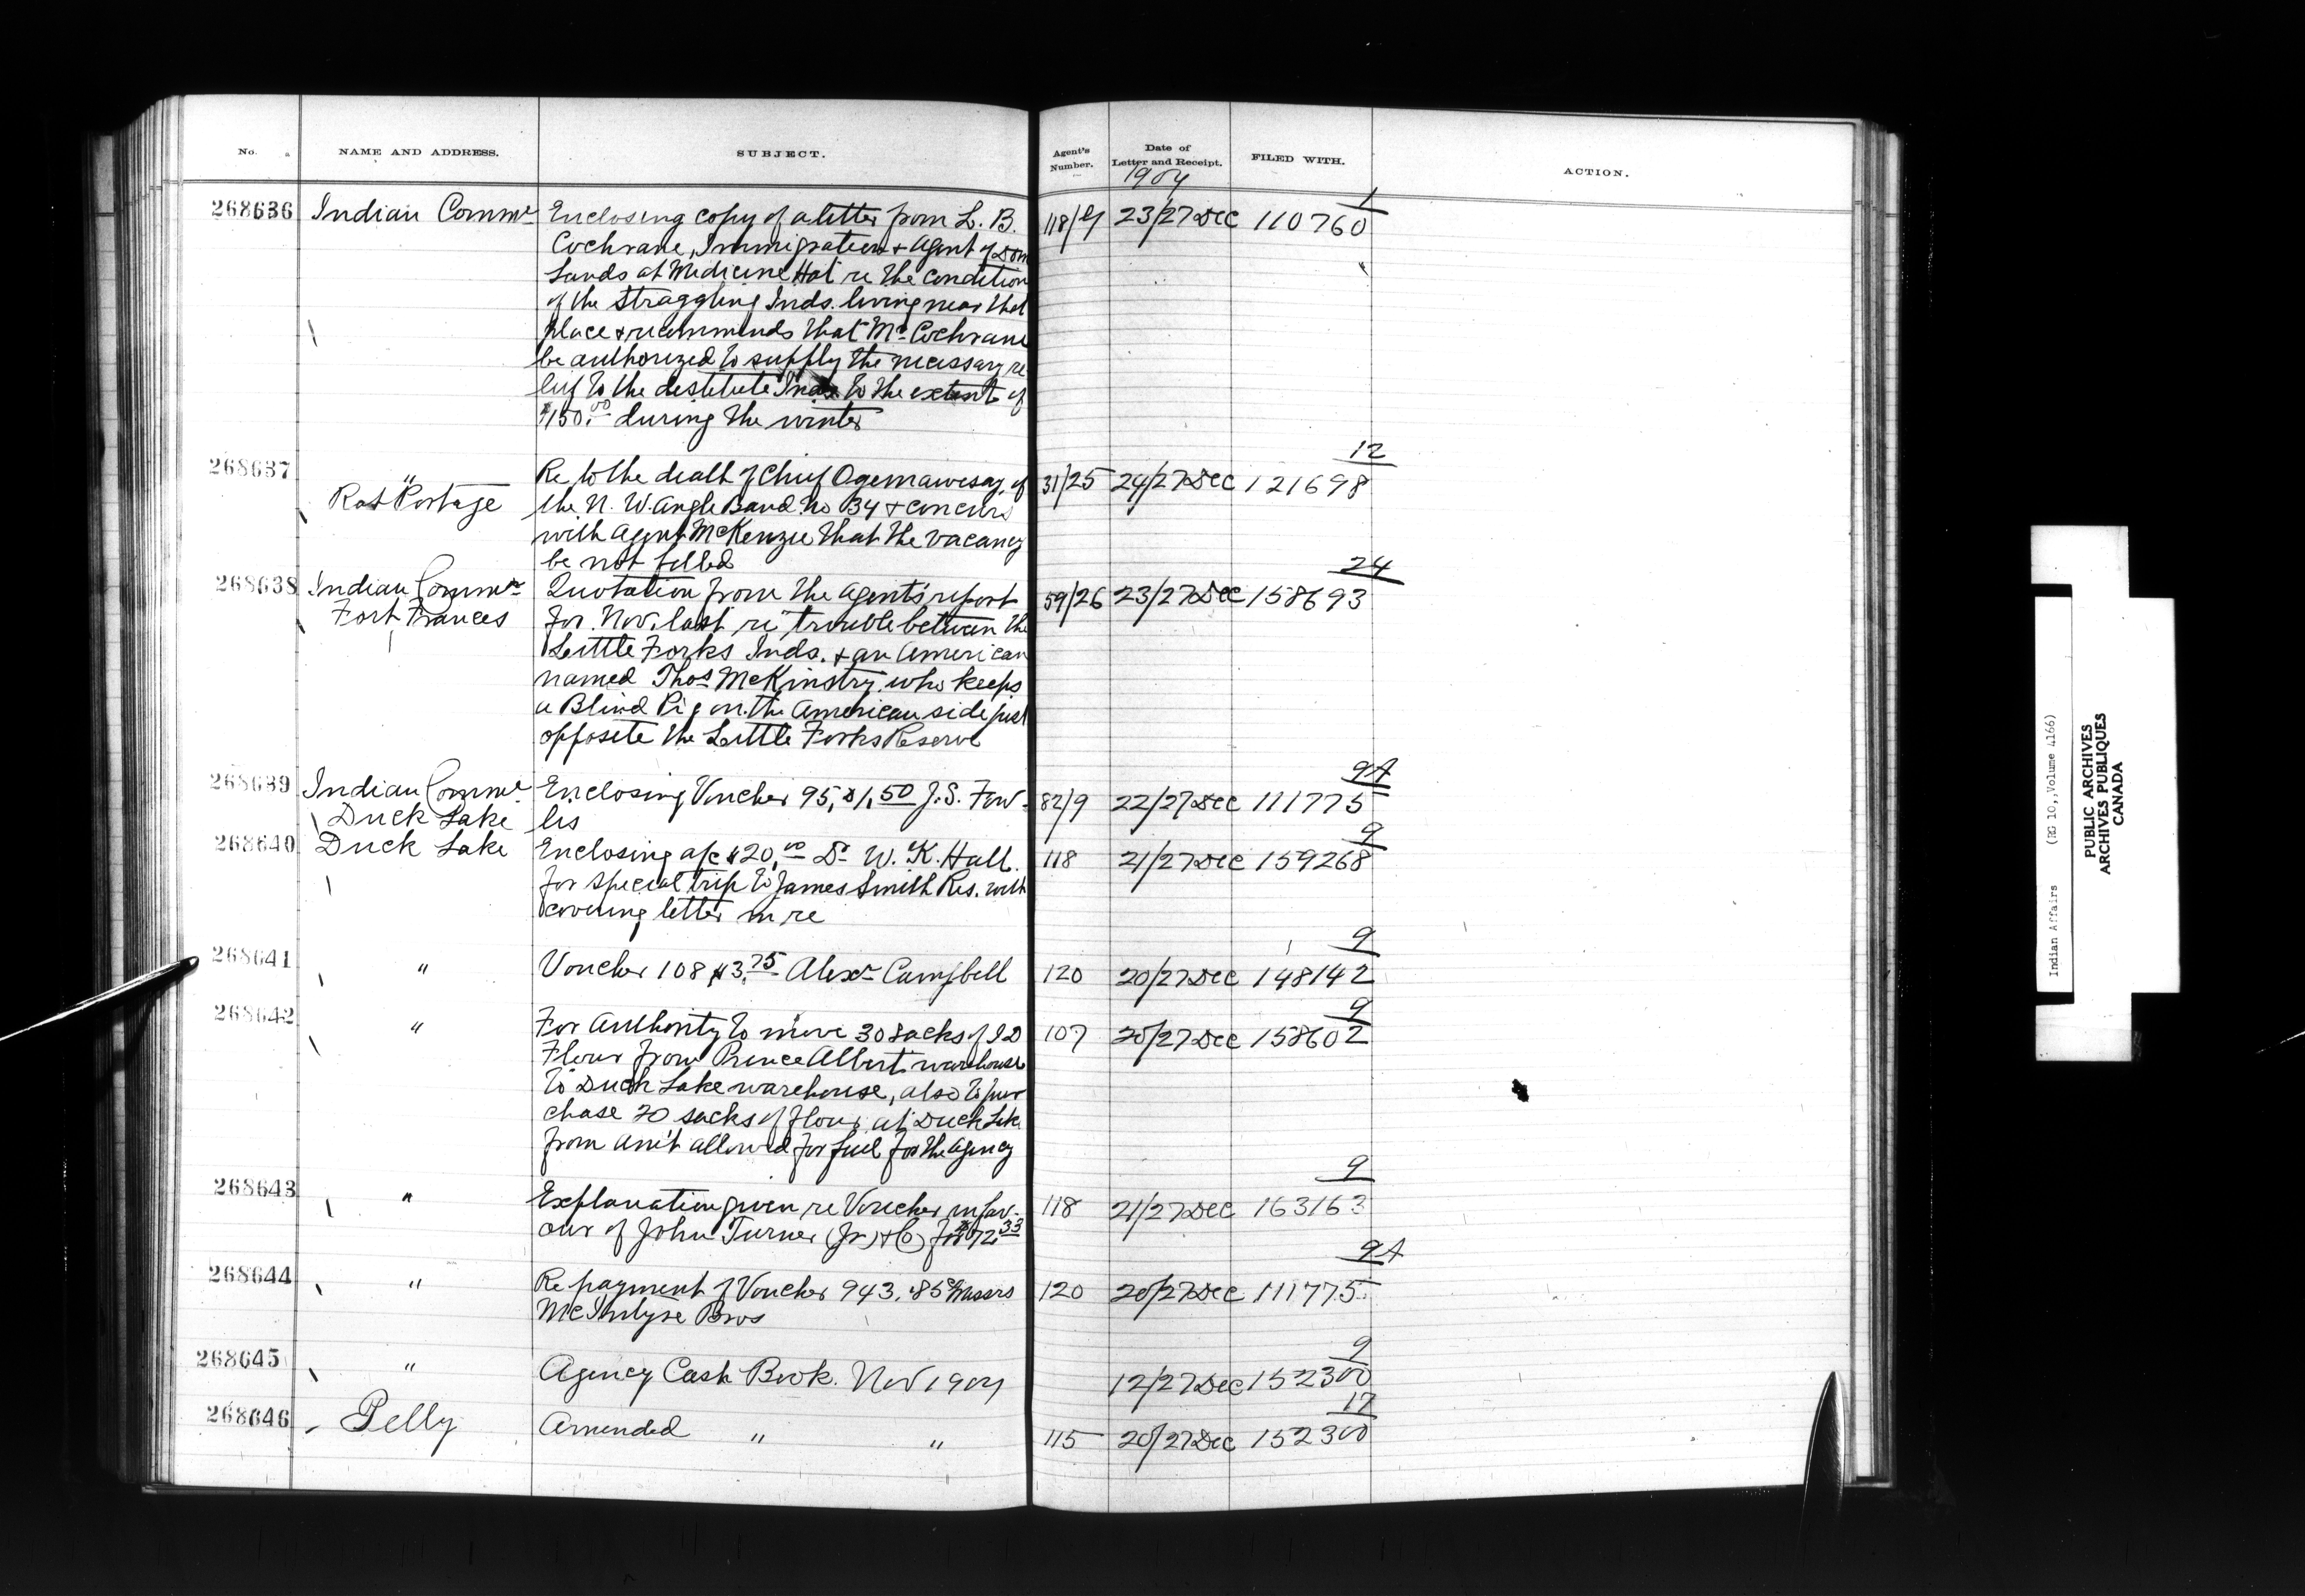 No. NAME AND ADDRESS. SUBJECT. Agent's Number. Date of Letter and Receipt. FILED WITH. ACTION.
1904
1
268636 Indian Commr Enclosing copy of a letter from L. B. 118/ 23/27 Dec 110760
Cochrane, Immigration + Agent of Dom
Lands at Medicine Hat re the condition
of the straggling Inds. living near that
place + recommends that Mr Cochrane
be authorized to supply the necessary re
lief to the destitute Inds to the extent of
$150.00 during the winter
12
268637 " Re to the death of Chief Ogemawesay, of 31/25 24/27 Dec 121698
Rat Portage the N. W. Angle Band No 34 + concurs
with Agent McKenzie that the vacancy
be not filled
24
268638 Indian Commr Quotation from the Agent's report 59/26 23/27 Dec 158693
Fort Frances for Nov. last re trouble between the
Little Forks Inds. + an American
named Thos McKinstry who keeps
a Blind Pig on the American side just
opposite the Little Forks Reserve
9A
268639 Indian Commr Enclosing Voucher 95, $1.50 J. S. Fow- 82/9 22/27 Dec 111775
Duck Lake lis
9
268640 Duck Lake Enclosing a/c $20.00 Dr W. K. Hall 118 21/27 Dec 159268
for special trip to James Smith Res. with
covering letter in re
9
268641 " Voucher 108 $3.75 Alexr Campbell 120 20/27 Dec 148142
9
268642 " For Authority to move 30 sacks of ID 107 20/27 Dec 158602
Flour from Prince Albert warehouse
to Duck Lake warehouse, also to pur
chase 20 sacks of flour at Duck Lake
from am't allowed for fuel for the Agency
9
268643 " Explanation given re Voucher in fav- 118 21/27 Dec 163163
our of John Turner (Jr) + Co for $72.33
9A
268644 " Re payment of Voucher 943, .85c Messrs 120 20/27 Dec 111775
McIntyre Bros
9
268645 " Agency Cash Book. Nov 1904 12/27 Dec 152300
17
268646 Pelly Amended " " 115 20/27 Dec 152300
Indian Affairs (RG 10,,Volume 4166)
PUBLIC ARCHIVES
ARCHIVES PUBLIQUES
CANADA